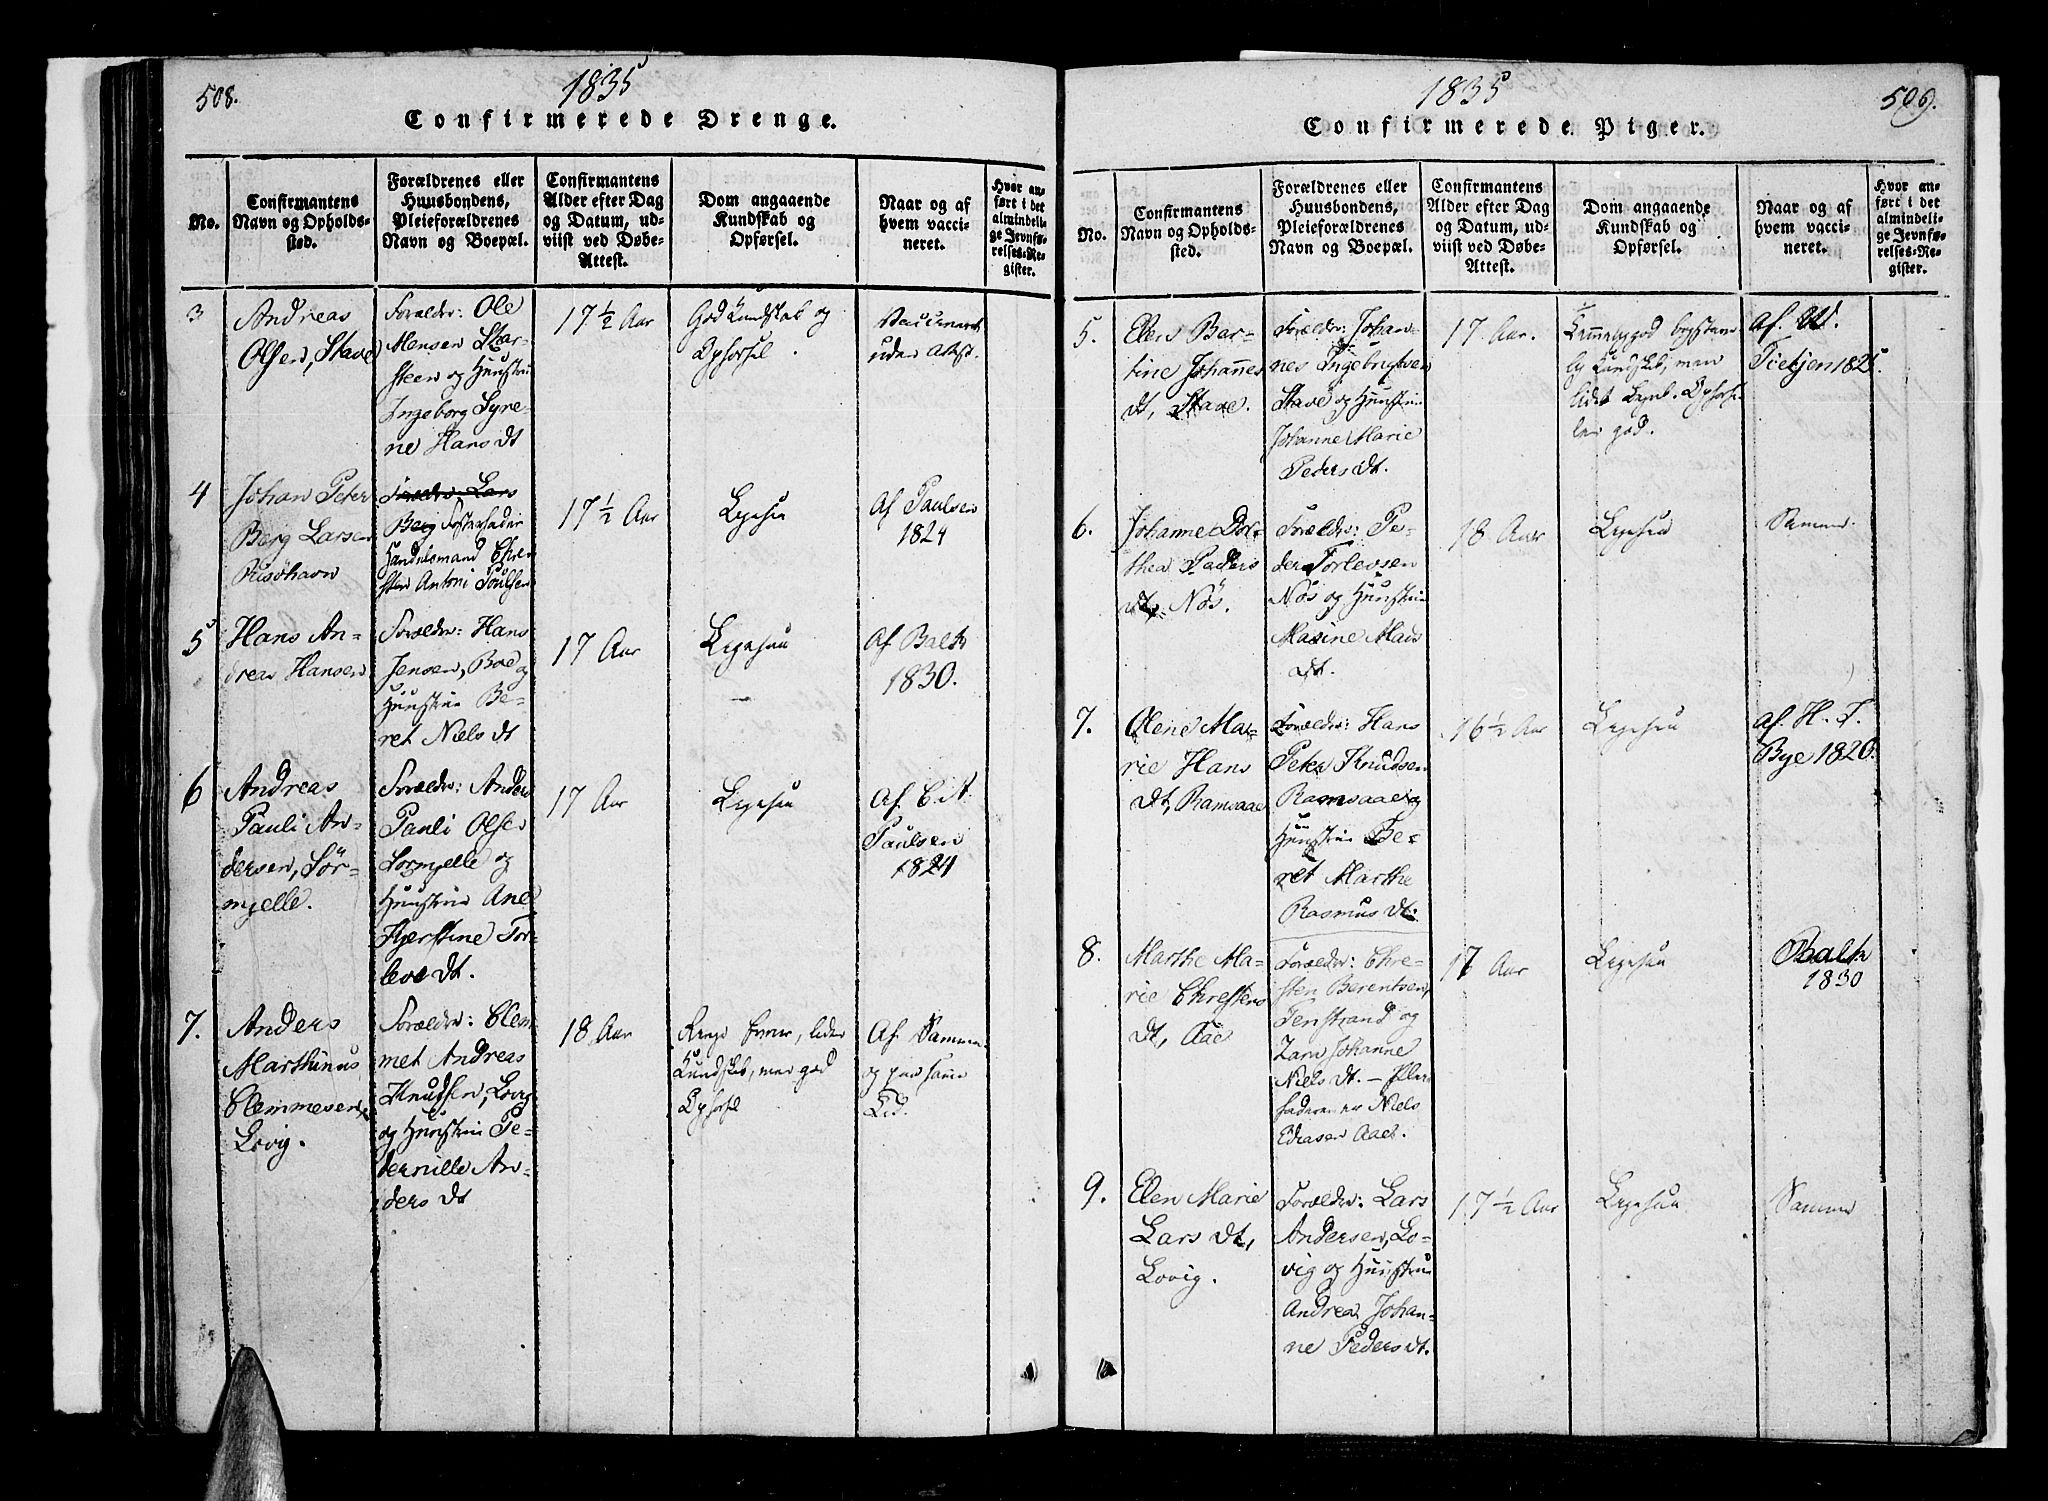 508.
1835
Confirmerede Drenge.
No.
Confirmantens
Navn og Opholds-
sted.
Forældrenes eller
Huusbondens,
Pleieforældrenes
Navn og Boepæl.
Confirmantens
Alder efter Dag
og Datum, ud-
viist ved Døbe-
Attest.
Dom angaaende
Kundskab og
Opførsel.
Naar og af
hvem vacci-
neret.
Hvor an-
ført i det
almindeli-
ge Jevnfø-
relses-Re-
gister.
3
Andreas
Olsen, Stave
Forældre: Ole
Mensen Skar-
steen og Huustru
Ingeborg Syre-
ne Hans dt
17 1/2 Aar
God Kundskab og
Opførsel.
uden Attest.
4
Johan Peter
Berg Larsen
Risöhavn
Forældre: Lars
Berg Fosterfader
Handelsmand Chre-
sten Antoni Poulsen
17 1/2 Aar
Ligesaa
Af Paulsen
1824
5
Hans An-
dreas Hansen
Forældre: Hans
Jensen, Boe og
Huustru Be-
ret Niels dt
17 Aar
Ligesaa
Af Balk
1830.
6
Andreas
Pauli An-
dersen, Sör-
mjelle.
Forældre: Anders
Pauli Olsen
Sormjelle og
Huustru Ane
Kjerstine Tor-
leve dt.
17 Aar
Ligesaa
Af
Paulsen
1824
7.
Anders
Marthinus
Clemmesen,
Lovig.
Forældre: Clem-
met Andreas
Knudsen, Lovig
og Huustru Pe-
dernille An-
ders dt
18 Aar
Kundskab, men god
Opførsel
Af Samme
og paa samme
Tid.
509.
1835
Confirmerede Piger.
No.
Confirmantens
Navn og Opholds-
sted.
Forældrenes eller
Huusbondens,
Pleieforældrenes
Navn og Boepæl.
Confirmantens
Alder efter Dag
og Datum, ud-
viist ved Døbe-
Attest.
Dom angaaende
Kundskab og
Opførsel.
Naar og af
hvem vacci-
neret.
Hvor an-
ført i det
almindeli-
ge Jevnfø-
relses-Re-
gister.
5.
Elen Bar-
tine Johannes
dt, Stave.
Forældre: Johan-
nes Ingebrigtsen
Stave og Huustru
Johanne Marie
Peders dt.
17 Aar.
god.
Af
Tietjen 1825.
6.
Johanne Dor-
thea Peders
dt, Nös.
Forældre: Pe-
der Torlevsen
Nös og Huustru
Masine Mads
dt.
18 Aar
Ligesaa
Samme.
7.
Olene Ma-
rie Hans
dt, Ramsaae
Forældre: Hans
Peter Knudsen
Ramsaae og
Huustru Be-
ret Marthe
Rasmus dt.
16 1/2 Aar
Ligesaa
Af. H. T.
Bye 1820.
8.
Marthe Ma-
rie Chrestens
dt, Aae
Forældre: Chre-
sten Berentsen,
Fenstrand og
Zara Johanne
Niels dt. –
faderen er Niels
Aaes.
17 Aar
Ligesaa
Balk
1830
9.
Elen Marie
Lars dt,
Lovig.
Forældre: Lars
Andersen, Lo-
vig og Huustru
Andrea Johan-
ne Peders dt.
17 1/2 Aar
Ligesaa
Samme